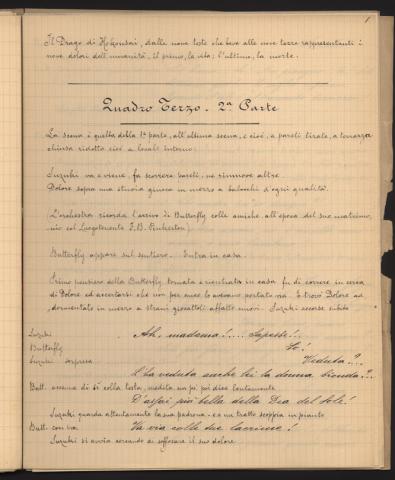 1
Il Drago di Hokousai, dalle nove teste che beve alle nove tazze rappresentanti i
nove dolori dell'umanità, il primo, la vita; l'ultimo, la morte.
Quadro Terzo - 2ª Parte
La scena è quella della 1ª parte, all'ultima scena, e cioè, a pareti tirate, a terrazza
chiusa ridotta cioè a locale interno.
Suzuki va e viene, fa scorrere pareti, ne rimuove altre.
Dolore sopra una stuoia giuoca in mezzo a balocchi d'ogni qualità.
L'orchestra ricorda l'arrivo di Butterfly colle amiche, all'epoca del suo matrimo-
nio col Luogotenente F. B. Pinkerton.
Butterfly appare sul sentiero. Entra in casa.
Primo pensiero della Butterfly tornata e rientrata in casa fu di correre in cerca
di Dolore ed accertarsi che non per anco lo avevano portato via. E trovò Dolore ad-
dormentato in mezzo a strani giocattoli affatto nuovi. Suzuki accorse subito
Suzuki Ah, madama!.... Sapeste!..
Butterfly So!
Suzuki sorpresa Veduta?...
L'ha veduta anche lei la donna bionda?..
Butt. accenna di sì colla testa, medita un po' poi dice lentamente
D'assai più bella della Dea del Sole!
Suzuki guarda attentamente la sua padrona - e a un tratto scoppia in pianto
Butt. con ira Va via colle tue lacrime!
Suzuki si avvia cercando di soffocare il suo dolore